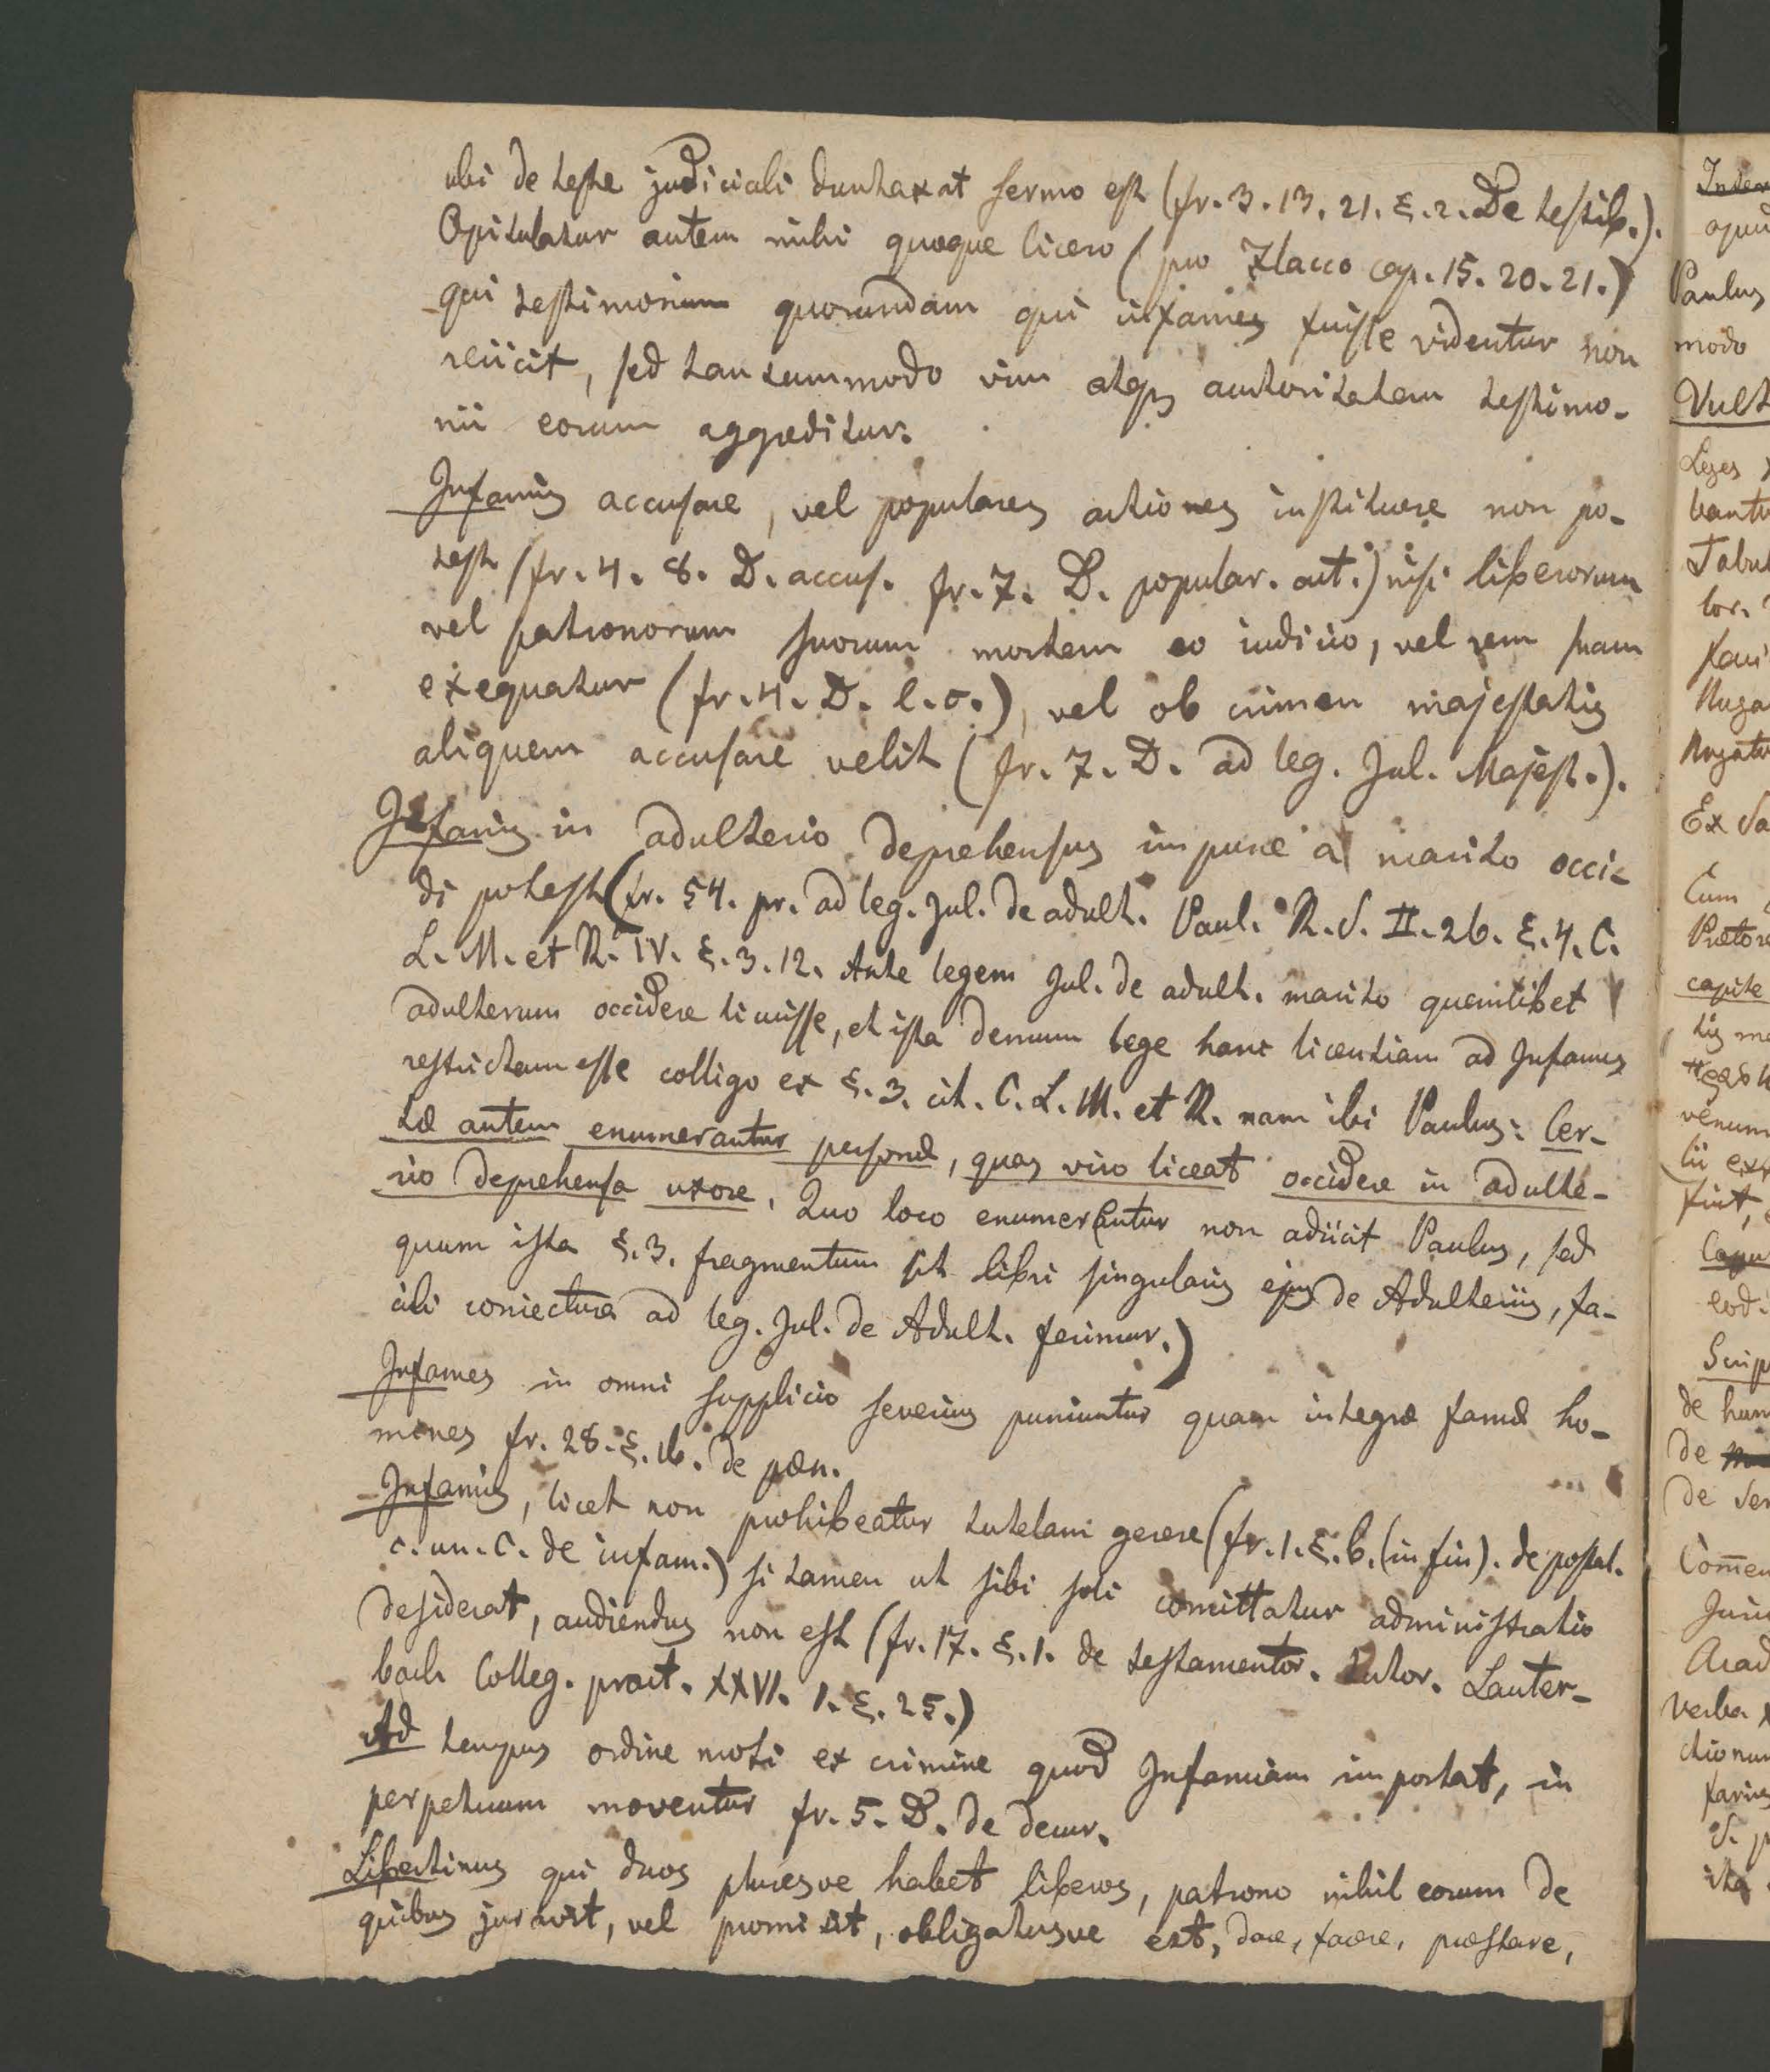 ubi de teste judiciali duntaxat sermo est (fr. 3. 13. 21. §. 2. De testib.).
Opitulatur autem mihi quoque Cicero (pro Flacco cap. 15. 20. 21.)
qui testimonium quorundam qui infames fuisse videntur non
reiicit, sed tantummodo vim atque auctoritatem testimo-
nii eorum aggreditur.
Infamis accusare, vel populares actiones instituere non po-
test (fr. 4. 8. D. accus. fr. 7. D. popular. act.) nisi liberorum
vel patronorum suorum mortem eo iudicio, vel rem suam
exequatur (fr. 4. D. l. c.), vel ob crimen majestatis
aliquem accusare velit (fr. 7. D. ad leg. Jul. Majest.).
Infamis in adulterio deprehensus impune a marito occi-
di potest (fr. 54. pr. ad leg. Jul. de adult. Paul. R. S. II. 26. §. 4. C.
L. M. et R. IV. §. 3. 12. Ante legem Jul. de adult. marito quemlibet
adulterum occidere licuisse, et ista demum lege hanc licentiam ad Infames
restrictam esse colligo ex §. 3. cit. C. L. M. et R. nam ibi Paulus: Cer-
tæ autem enumerantur personæ, quas viro liceat occidere in adulte-
rio deprehensa uxore. Quo loco enumerentur non adiicit Paulus, sed
quum ista §. 3. fragmentum sit libri singularis ejus de Adulteriis, fa-
cili coniectura ad leg. Jul. de Adult. ferimur.)
Infames in omni supplicio severius puniuntur quam integræ famæ ho-
mines fr. 28. §. 16. de pœn.
Infamis, licet non prohibeatur tutelam gerere (fr. 1. §. 6. (in fin). de postul.
c. un. C. de infam.) si tamen ut sibi soli comittatur administratio
desiderat, audiendus non est (fr. 17. §. 1. de testamentor. tutor. Lauter-
bach Colleg. pract. XXVI. 1. §. 25.)
Ad tempus ordine moti ex crimine quod Infamiam importat, in
perpetuum moventur fr. 5. D. de decur.
Libertinus qui duos pluresve habet liberos, patrono nihil eorum de
quibus juravit, vel promisit, obligatusve est, dare, facere, præstare,
Paulus
modo
Vult
Leges
Ex
Cum
capite
venum
de
verba
ita